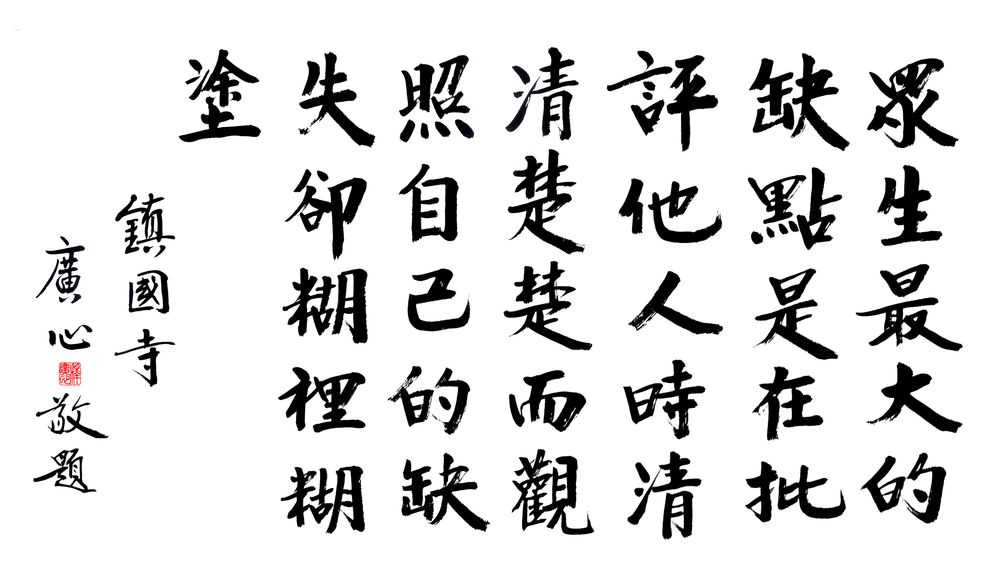 眾生最大的
缺點是在批
評他人時清
清楚楚而觀
照自己的缺
失卻糊裡糊
塗
鎮國寺
廣心敬題